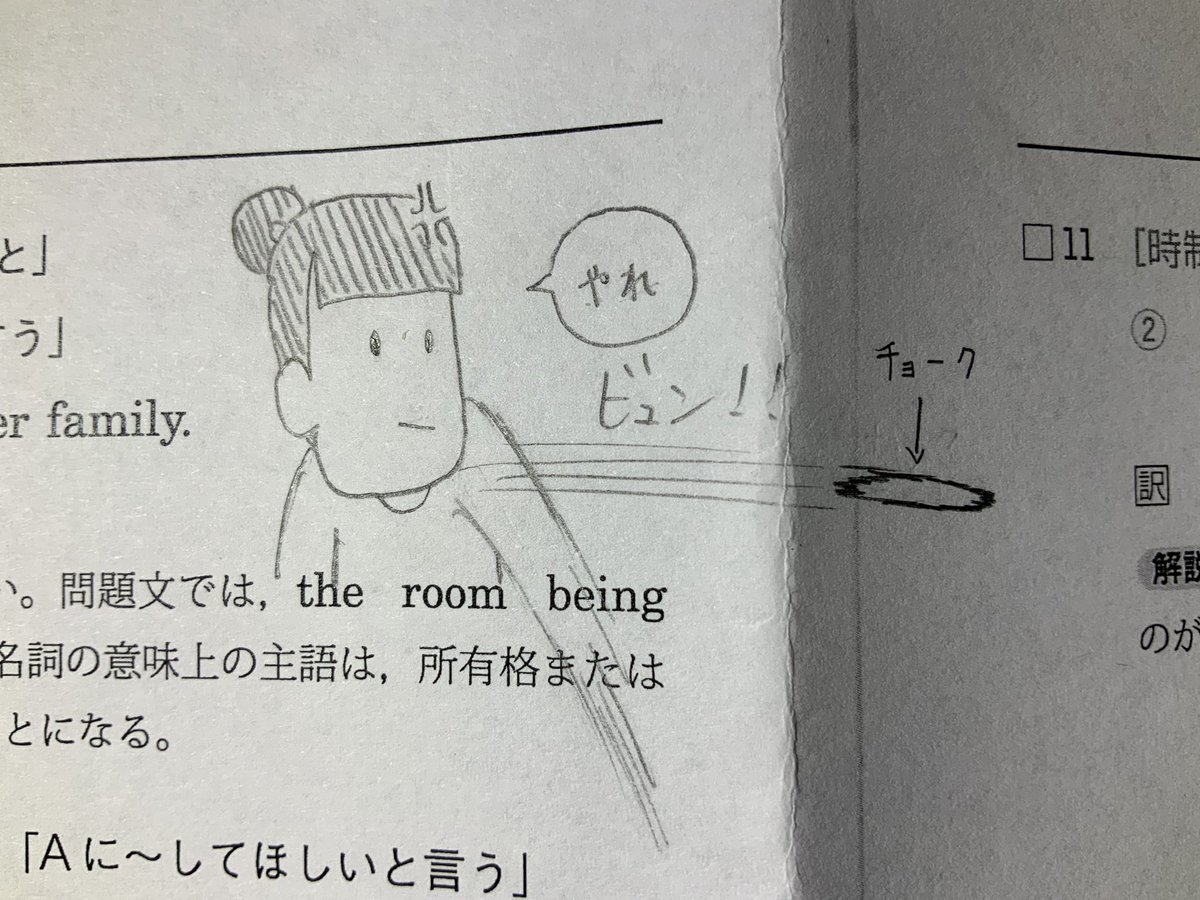 と」
う」
er family.
い。問題文では, the room being
名詞の意味上の主語は, 所有格または
とになる。
「Aに〜してほしいと言う」
やれ
ビュン!!
チョーク
□11 [時制
②
訳
解説
のが